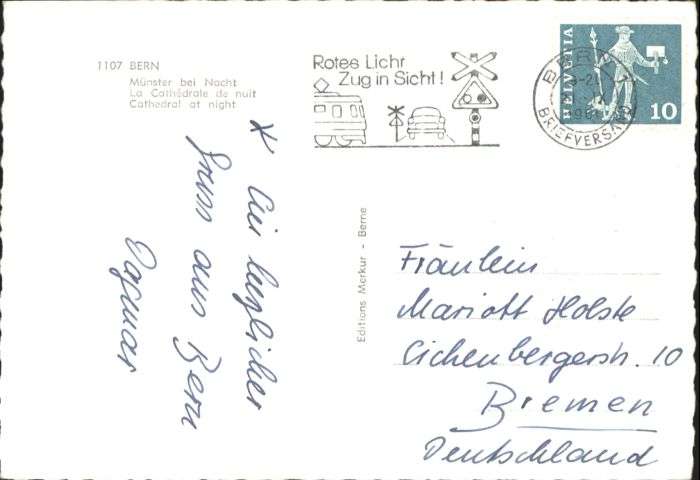 1107 BERN
Münster bei Nacht
La Cathédrale de nuit
Cathedral at night
Rotes Licht
Zug in Sicht!
HELVETIA
10
BERN 1
BRIEFVERSAND
* Ein herzlicher
Gruss aus Bern
Dagmar
Editions Merkur - Berne
Fräulein
Mariott Holste
Eichenbergerstr. 10
Bremen
Deutschland